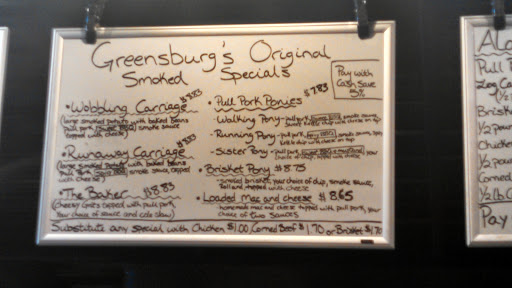 Greensburg's Original
Smoked Specials
Pay with
Cash Save
Wobbling Carriage
large smoked potato with baked beans
pull pork, sweet BBQ, smoke sauce
topped with cheese
Runaway Carriage
large smoked potato with baked beans
pull pork smoke sauce, topped
with cheese
The Baker $8.83
topped with pull pork,
your choice of sauce and cole slaw
Pull Pork Ponies $7.83
Walking Pony - pull pork smoke sauce,
with cheese on top
Running Pony - pull pork
with cheese on top
Sister Pony - pull pork your
choice of chip, topped with cheese
Brisket Pony $8.75
smoked brisket, your choice of chip, smoke sauce,
and topped with cheese
Loaded Mac and cheese $8.65
homemade mac and cheese topped with pull pork, your
choice of two sauces
Substitute any special with Chicken $1.00, Corned Beef $1.70 or Brisket $1.70
Pull
Brisket
1/2 pou
Chicken
1/2 pou
Corned
1/2 lb
Pay